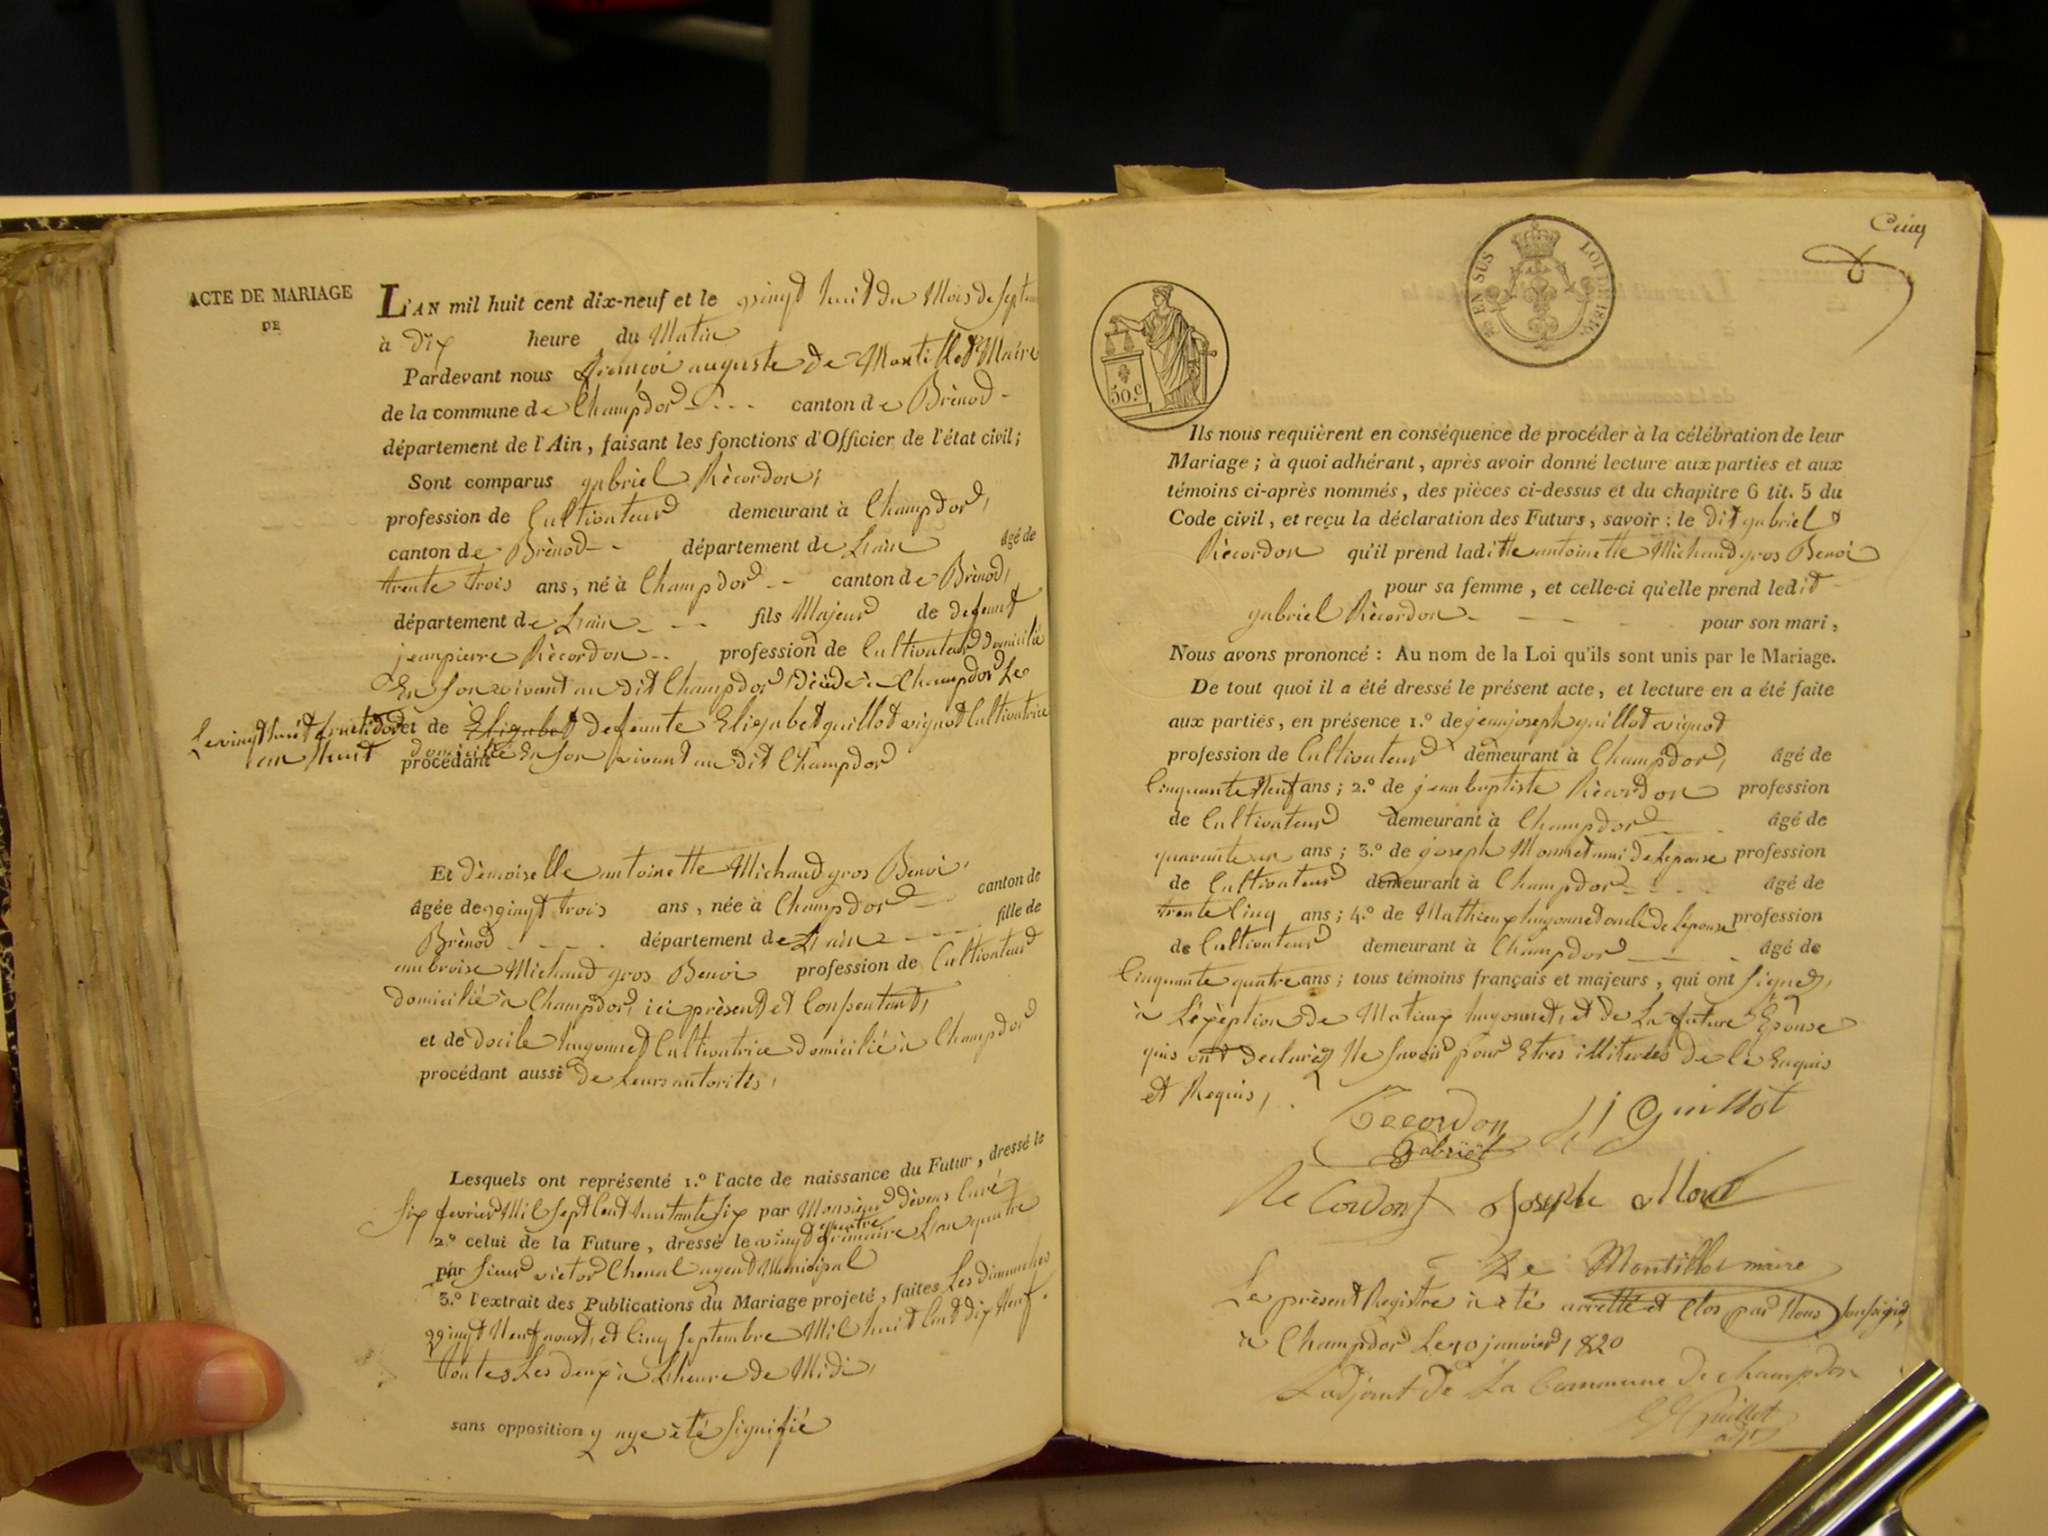 ACTE DE MARIAGE
DE
L'AN mil huit cent dix-neuf et le vingt huit du Mois de septem
à dix heure du Matin
Pardevant nous françoi auguste de Montillet Maire
de la commune de Champdor canton de Brènod
département de l'Ain, faisant les fonctions d'Officier de l'état civil;
Sont comparus gabriel Rècordon,
profession de Cultivateur demeurant à Champdor,
canton de Brènod département de Lain âgé de
trente trois ans, né à Champdor canton de Brènod,
département de Lain fils Majeur de defeunt
jeanpierre Rècordon profession de Cultivateur domicilié
En son vivant au dit Champdor Décédé a Champdor Le
Le vingt huit fructidor et de Elizabet defeunte Elizabet guillot vignot Cultivatrice
an huit domicilié En son vivant au dit Champdor
procédant
Et dèmoiselle antoinette Michaud gros Benoi,
âgée de vingt trois ans, née à Champdor canton de
Brènod département de Lain fille de
ambroise Michaud gros Benoi profession de Cultivateur
domicilié a Champdor, ici prèsent et Consentant,
et de docile hugonnet Cultivatrice domicilié a Champdor
procédant aussi de Leurs autorités,
Lesquels ont représenté 1.º l'acte de naissance du Futur, dressé le
six fevrier Mil sept Cent huitante six par Monsieur dèvens Curé
2.º celui de la Future, dressé le vingt quatre frimaire Lan quatre
par sieur victor Chenal agent Municipal
3.º l'extrait des Publications du Mariage projeté, faites Les dimanches
vingt Neuf aoust, et Cinq septembre Mil huit Cent dix Neuf.
toutes Les deux à Lheure de Midi,
sans opposition y aye èté signifié
Cinq
EN SUS LOI DE 1816
50.c
Ils nous requièrent en conséquence de procéder à la célébration de leur
Mariage; à quoi adhérant, après avoir donné lecture aux parties et aux
témoins ci-après nommés, des pièces ci-dessus et du chapitre 6 tit. 5 du
Code civil, et reçu la déclaration des Futurs, savoir: le dit gabriel
Rècordon qu'il prend laditte antoinette Michaud gros Benoi
pour sa femme, et celle-ci qu'elle prend ledit
gabriel Rècordon pour son mari,
Nous avons prononcé: Au nom de la Loi qu'ils sont unis par le Mariage.
De tout quoi il a été dressé le présent acte, et lecture en a été faite
aux parties, en présence 1.º de jeanjoseph guillot vignot
profession de Cultivateur demeurant à Champdor, âgé de
Cinquante Neuf ans; 2.º de jean baptiste Rècordon profession
de Cultivateur demeurant à Champdor âgé de
quarante un ans; 3.º de joseph Monnet ami de Lepouse profession
de Cultivateur demeurant à Champdor âgé de
trente Cinq ans; 4.º de Mathieux hugonnet oncle de Lepouse profession
de Cultivateur demeurant à Champdor âgé de
Cinquante quatre ans; tous témoins français et majeurs, qui ont signé,
a Lèxèption de Matieux hugonnet, et de La future Epouse
quis ont declaréz Ne savoir pour Etres illiterés de ce Enquis
et Requis,
Recordon
gabriel
jj Guillot
Recordon joseph Monet
De Montillet maire
Le prèsent Registre a èté arretté et Clos par Nous sousigné
a Champdor Le 10 janvier 1820
Ladjoint de La Commune de champdor
Guillot
adjt